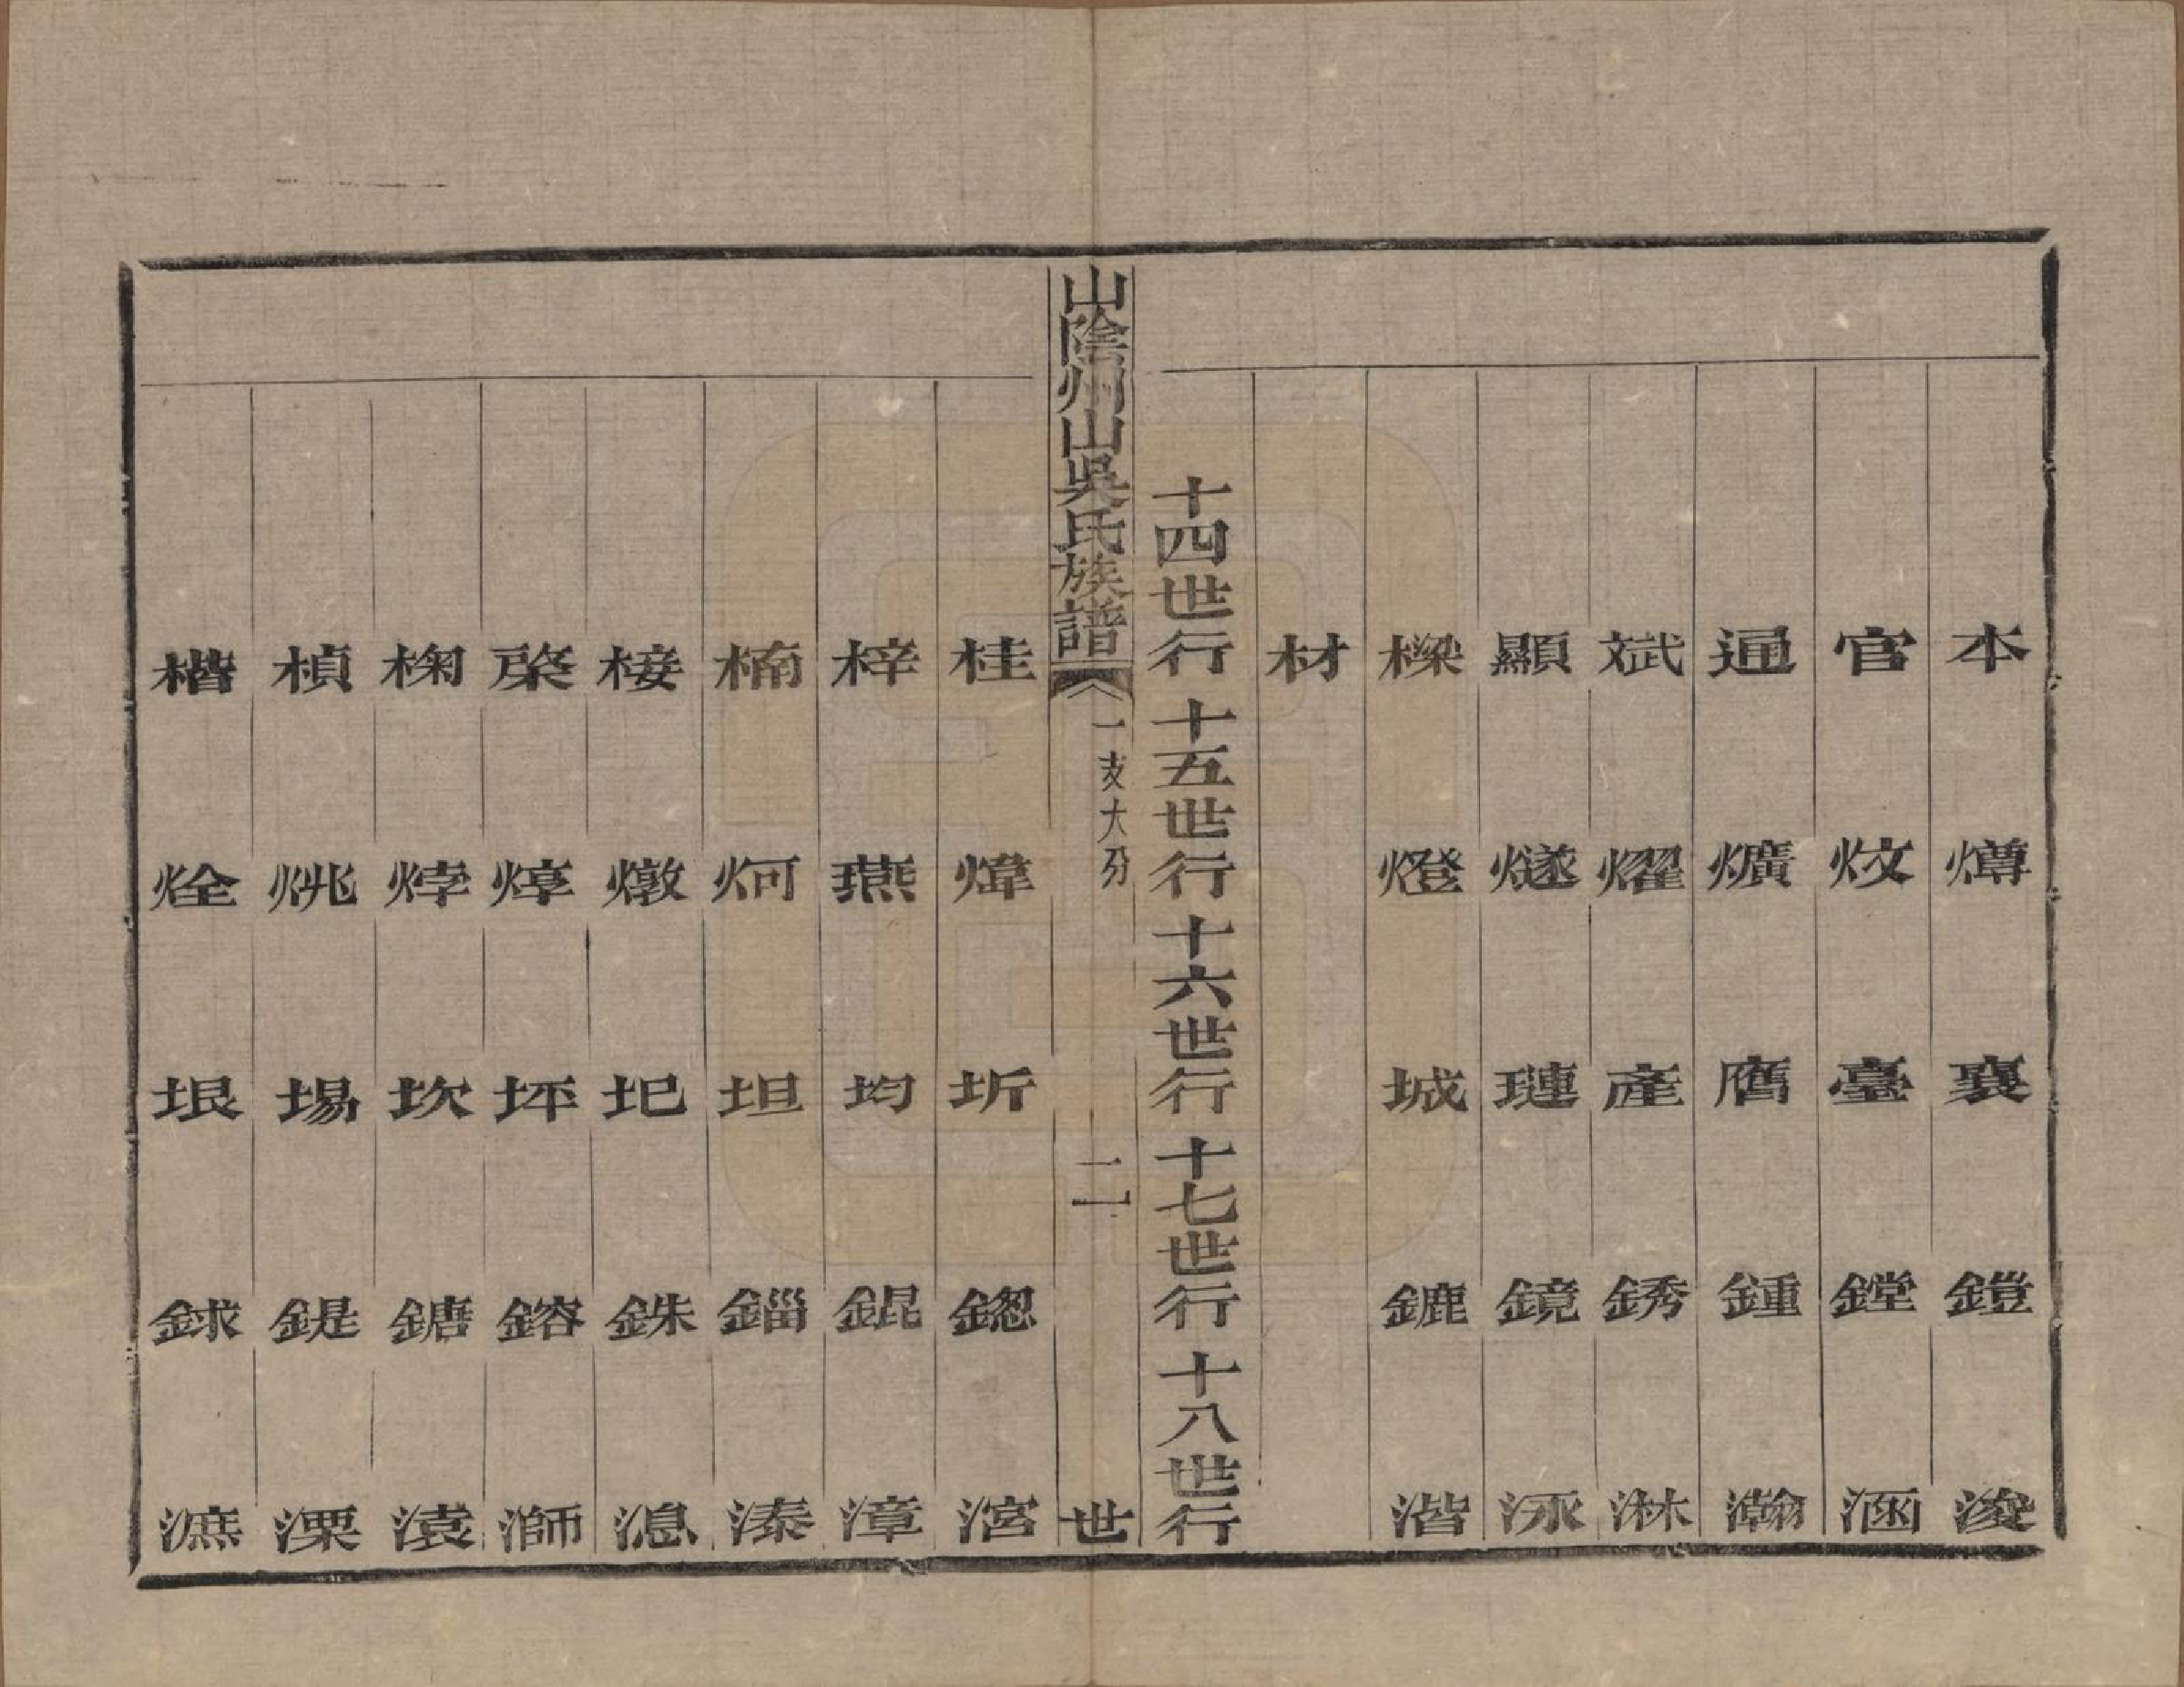 本 燇 襄 鐙 浚
官 炆 臺 鏜 涵
通 爌 鍾 瀚
斌 燿 產 銹 淋
顯 燧 璉 鏡 泳
樑 燈 城 鏕 湝
材
十四世行 十五世行 十六世行 十七世行 十八世行
山陰州山吳氏族譜 一支大分 二 世
桂 煒 圻 鍯 涫
梓 燕 均 錕 漳
楠 炣 坦 錙 溱
椄 燉 圯 銖 湨
棨 焞 坪 鎔 溮
椈 焞 坎 鎕 溒
楨 烑 場 鍉 溧
楷 烇 垠 銶 漉